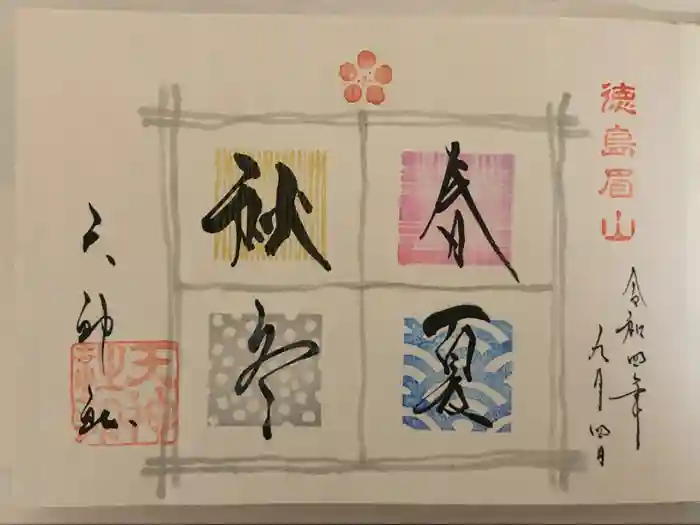 徳島眉山
令和四年
九月四日
春
夏
秋
冬
天神社
天神
社印